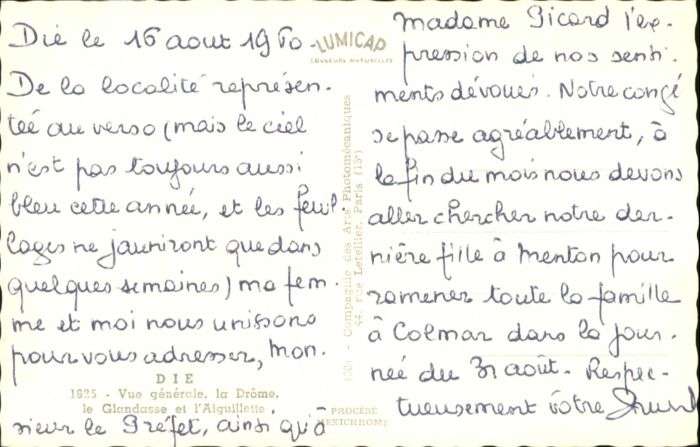 Dié le 16 aout 1960
De la localité représen-
teé au verso (mais le ciel
n'est pas toujours aussi
bleu cette année, et les feuil-
lages ne jauniront que dans
quelques semaines) ma fem-
me et moi nous unissons
pour vous adresser, Mon-
sieur le Préfet, ainsi qu'à
madame Picard l'ex-
pression de nos senti-
ments dévoués. Notre congé
se passe agréablement, à
la fin du mois nous devons
aller chercher notre der-
nière fille à Menton pour
ramener toute la famille
à Colmar dans la jour-
née du 31 août. Respec-
tueusement vôtre
LUMICAP
COULEURS NATURELLES
1625 - Compagnie des Arts Photomécaniques
44, rue Letellier, Paris (15e)
DIE
1625 - Vue générale, la Drôme,
le Glandasse et l'Aiguillette.
PROCÉDÉ
REXICHROME